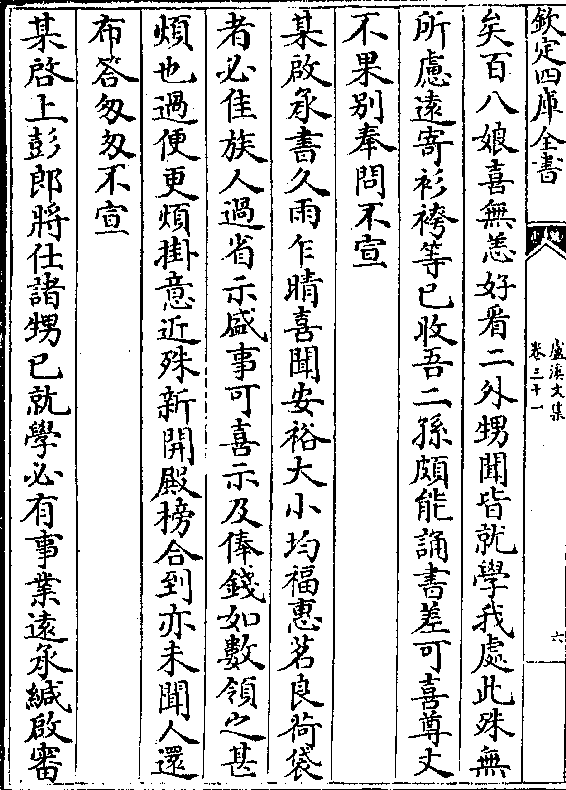 欽定四庫全書
盧溪文集
卷三十一
六
矣百八娘喜無恙好看二外甥聞皆就學我處此殊無
所慮遠寄衫袴等已收吾二孫頗能誦書差可喜尊丈
不果别奉問不宣
某啟承書久雨乍晴喜聞安裕大小均福惠茗良荷袋
者必佳族人過省示盛事可喜示及俸錢如數領之甚
煩也過便更煩掛意近殊新開殿榜合到亦未聞人還
布答匆匆不宣
某啓上彭郎將仕諸甥已就學必有事業遠承緘啟審